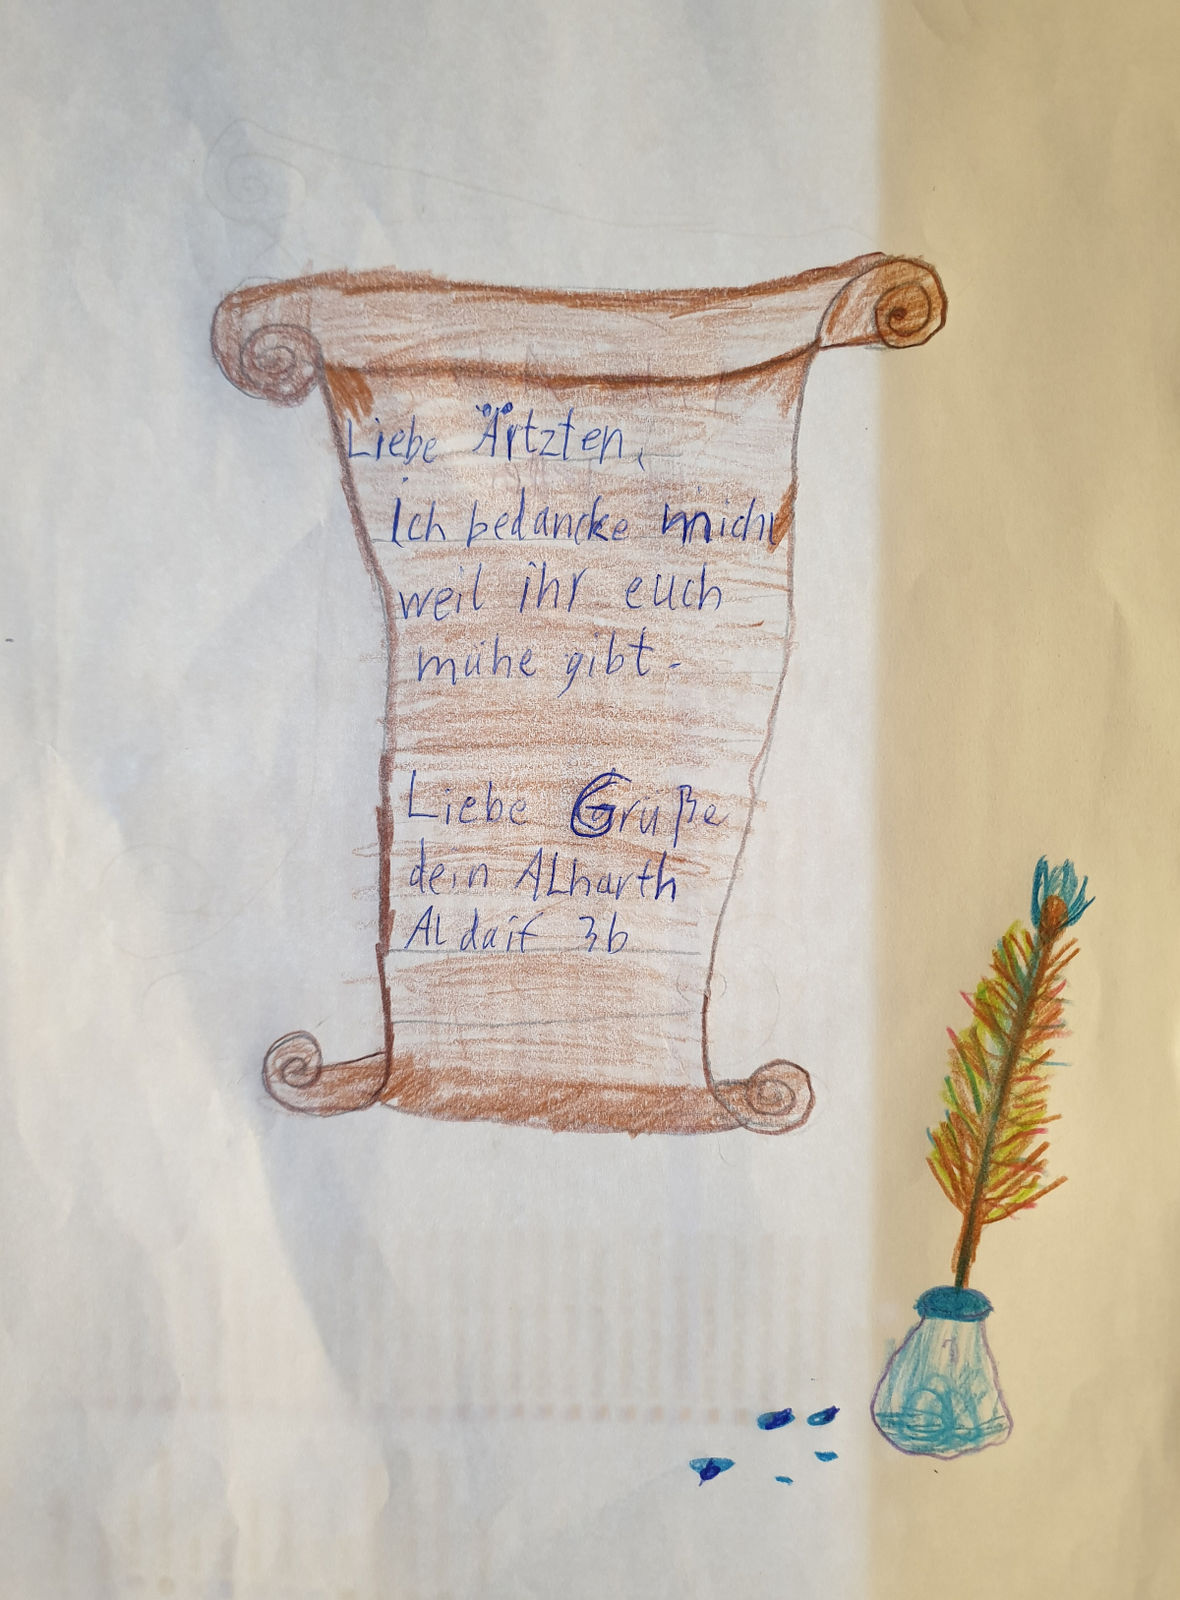 Liebe Ärtzten,
ich bedancke mich
weil ihr euch
mühe gibt.
Liebe Grüße
dein ALharth
ALdaif 3b